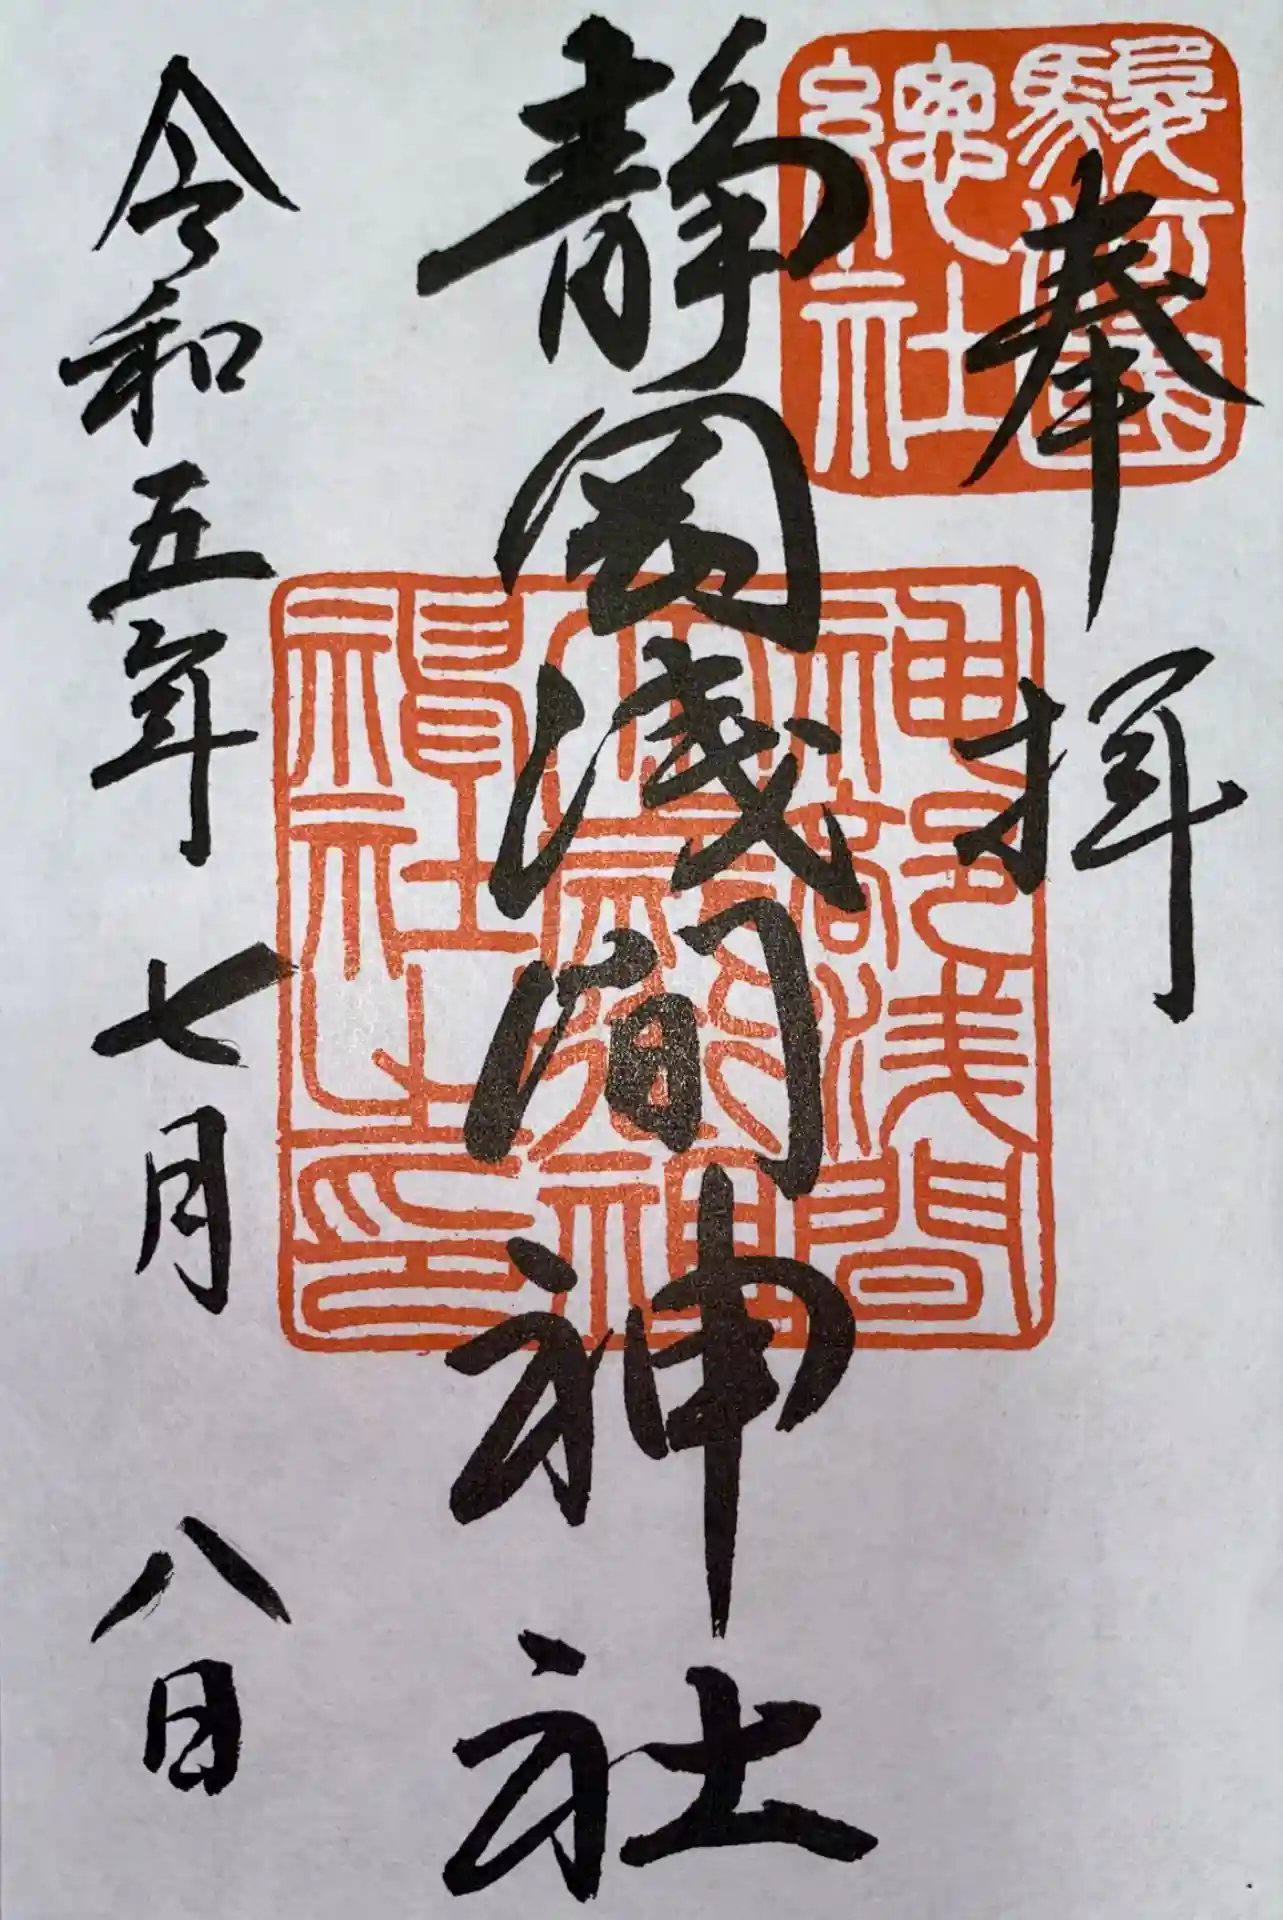 奉拝
駿河國
總社
静岡浅間神社
神部浅間
社之印
令和五年七月八日